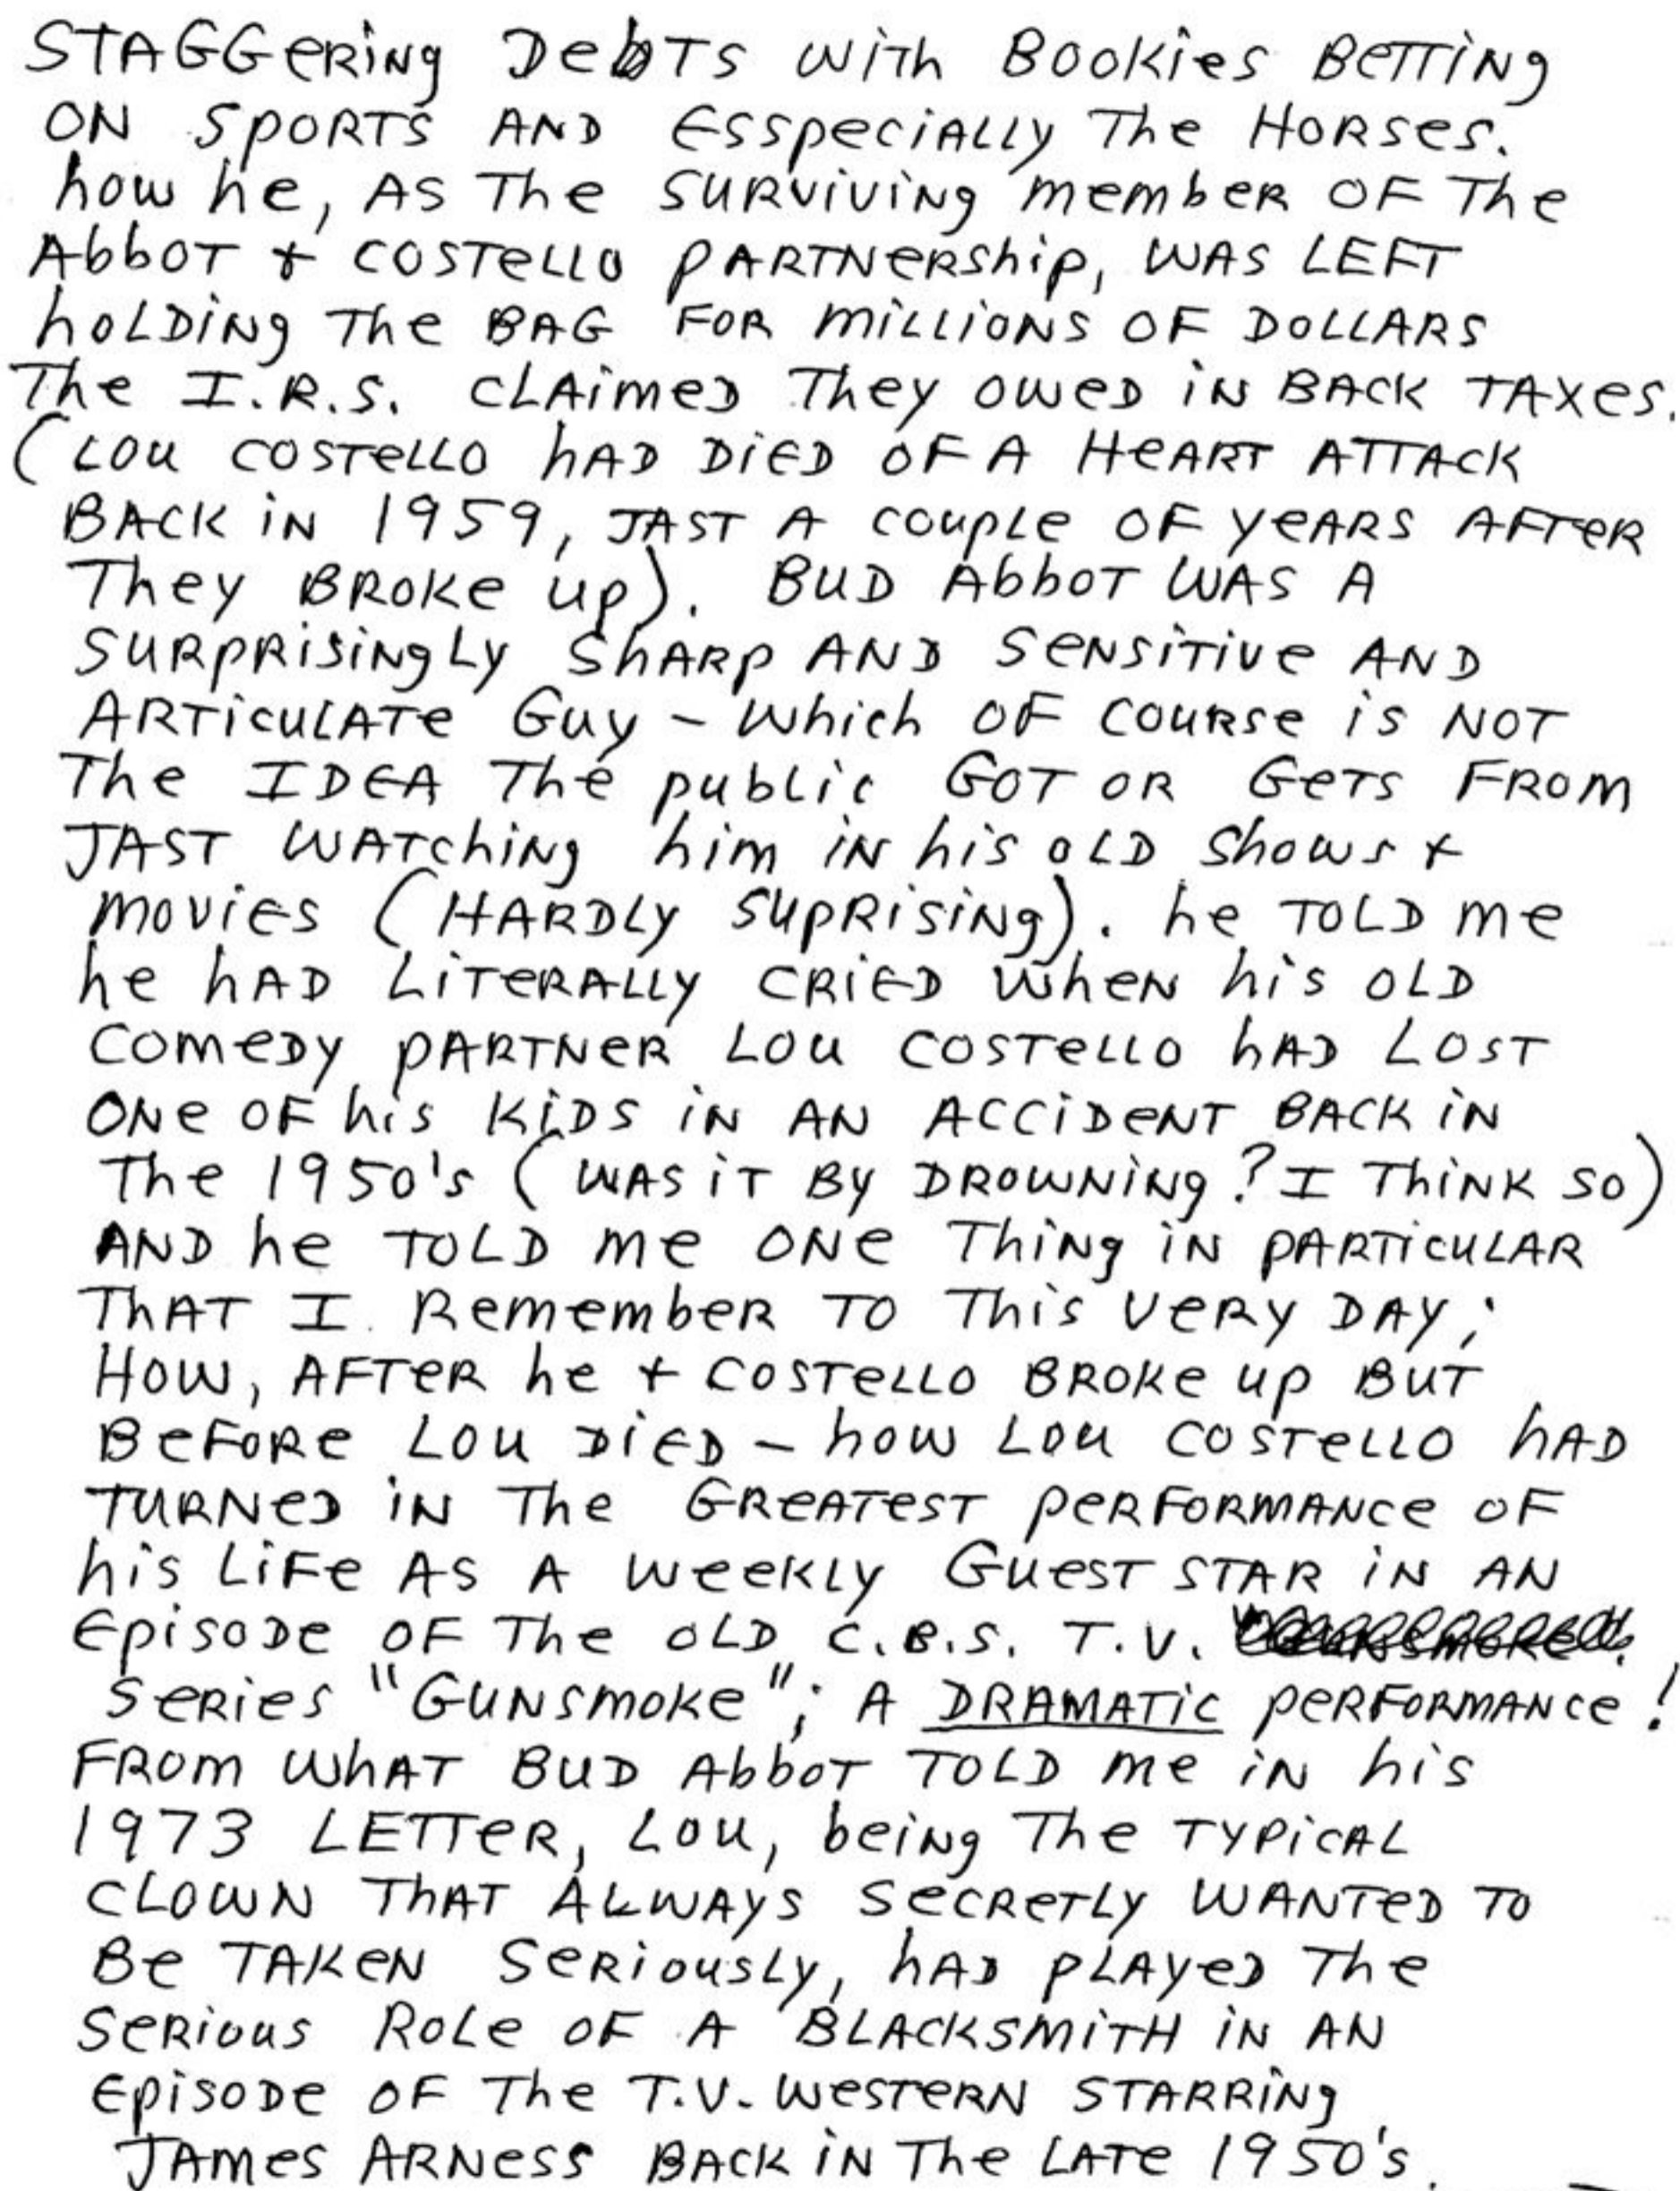 STAGGeRiNg DebTS WiTh BOOKies BeTTiNg
ON SPORTS AND ESSpeciALLy The HORSes.
how he, AS The SURViViNg member OF The
AbbOT + COSTeLLO PARTNeRShip, WAS LEFT
hOLDiNg The BAG FOR miLLiONS OF DOLLARS
The I.R.S. CLAimeD They OweD iN BACK TAXes.
(LOu COSTeLLO hAD DiED OF A HeART ATTACK
BACK iN 1959, JAST A COupLe OF yeARS AFTeR
They BROKe up). BuD AbbOT WAS A
SuRpRiSiNgLy ShARp AND SeNSiTiVe AND
ARTicuLATe Guy - Which OF COuRse iS NOT
The IDEA The pubLic GOT OR GeTS FROm
JAST WATchiNg him iN his OLD Shows +
moViES (HARDLy SupRiSiNg). he TOLD me
he hAD LiTeRALLy CRiED WheN his OLD
COmeDy PARTNeR LOu COSTeLLO hAD LOST
ONe OF his KiDS iN AN ACCiDeNT BACK iN
The 1950's (WAS iT By DROWNiNg? I ThiNK SO)
AND he TOLD me ONe ThiNg iN PARTicuLAR
ThAT I Remember TO This VeRy DAy;
HOW, AFTeR he + COSTeLLO BROKe up BuT
BeFORe LOu DiED - how LOu COSTeLLO hAD
TuRNeD iN The GReATeST PeRFORmANce OF
his LiFe AS A WeeKLy GueST STAR iN AN
EpiSODe OF The OLD C.B.S. T.V.
SeRies "GuNSmoKe"; A DRAMATiC PeRFORMANce!
FROm WhAT BuD AbbOT TOLD me iN his
1973 LETTeR, LOu, beiNg The TyPiCAL
CLOWN ThAT ALWAyS SecReTLy WANTeD TO
Be TAKeN SeRiOuSLy, hAD PLAyeD The
SeRiOuS ROLe OF A BLACKSMiTH iN AN
EpiSODe OF The T.V. WeSTeRN STARRiNg
JAmes ARNeSS BACK iN The LATe 1950's.